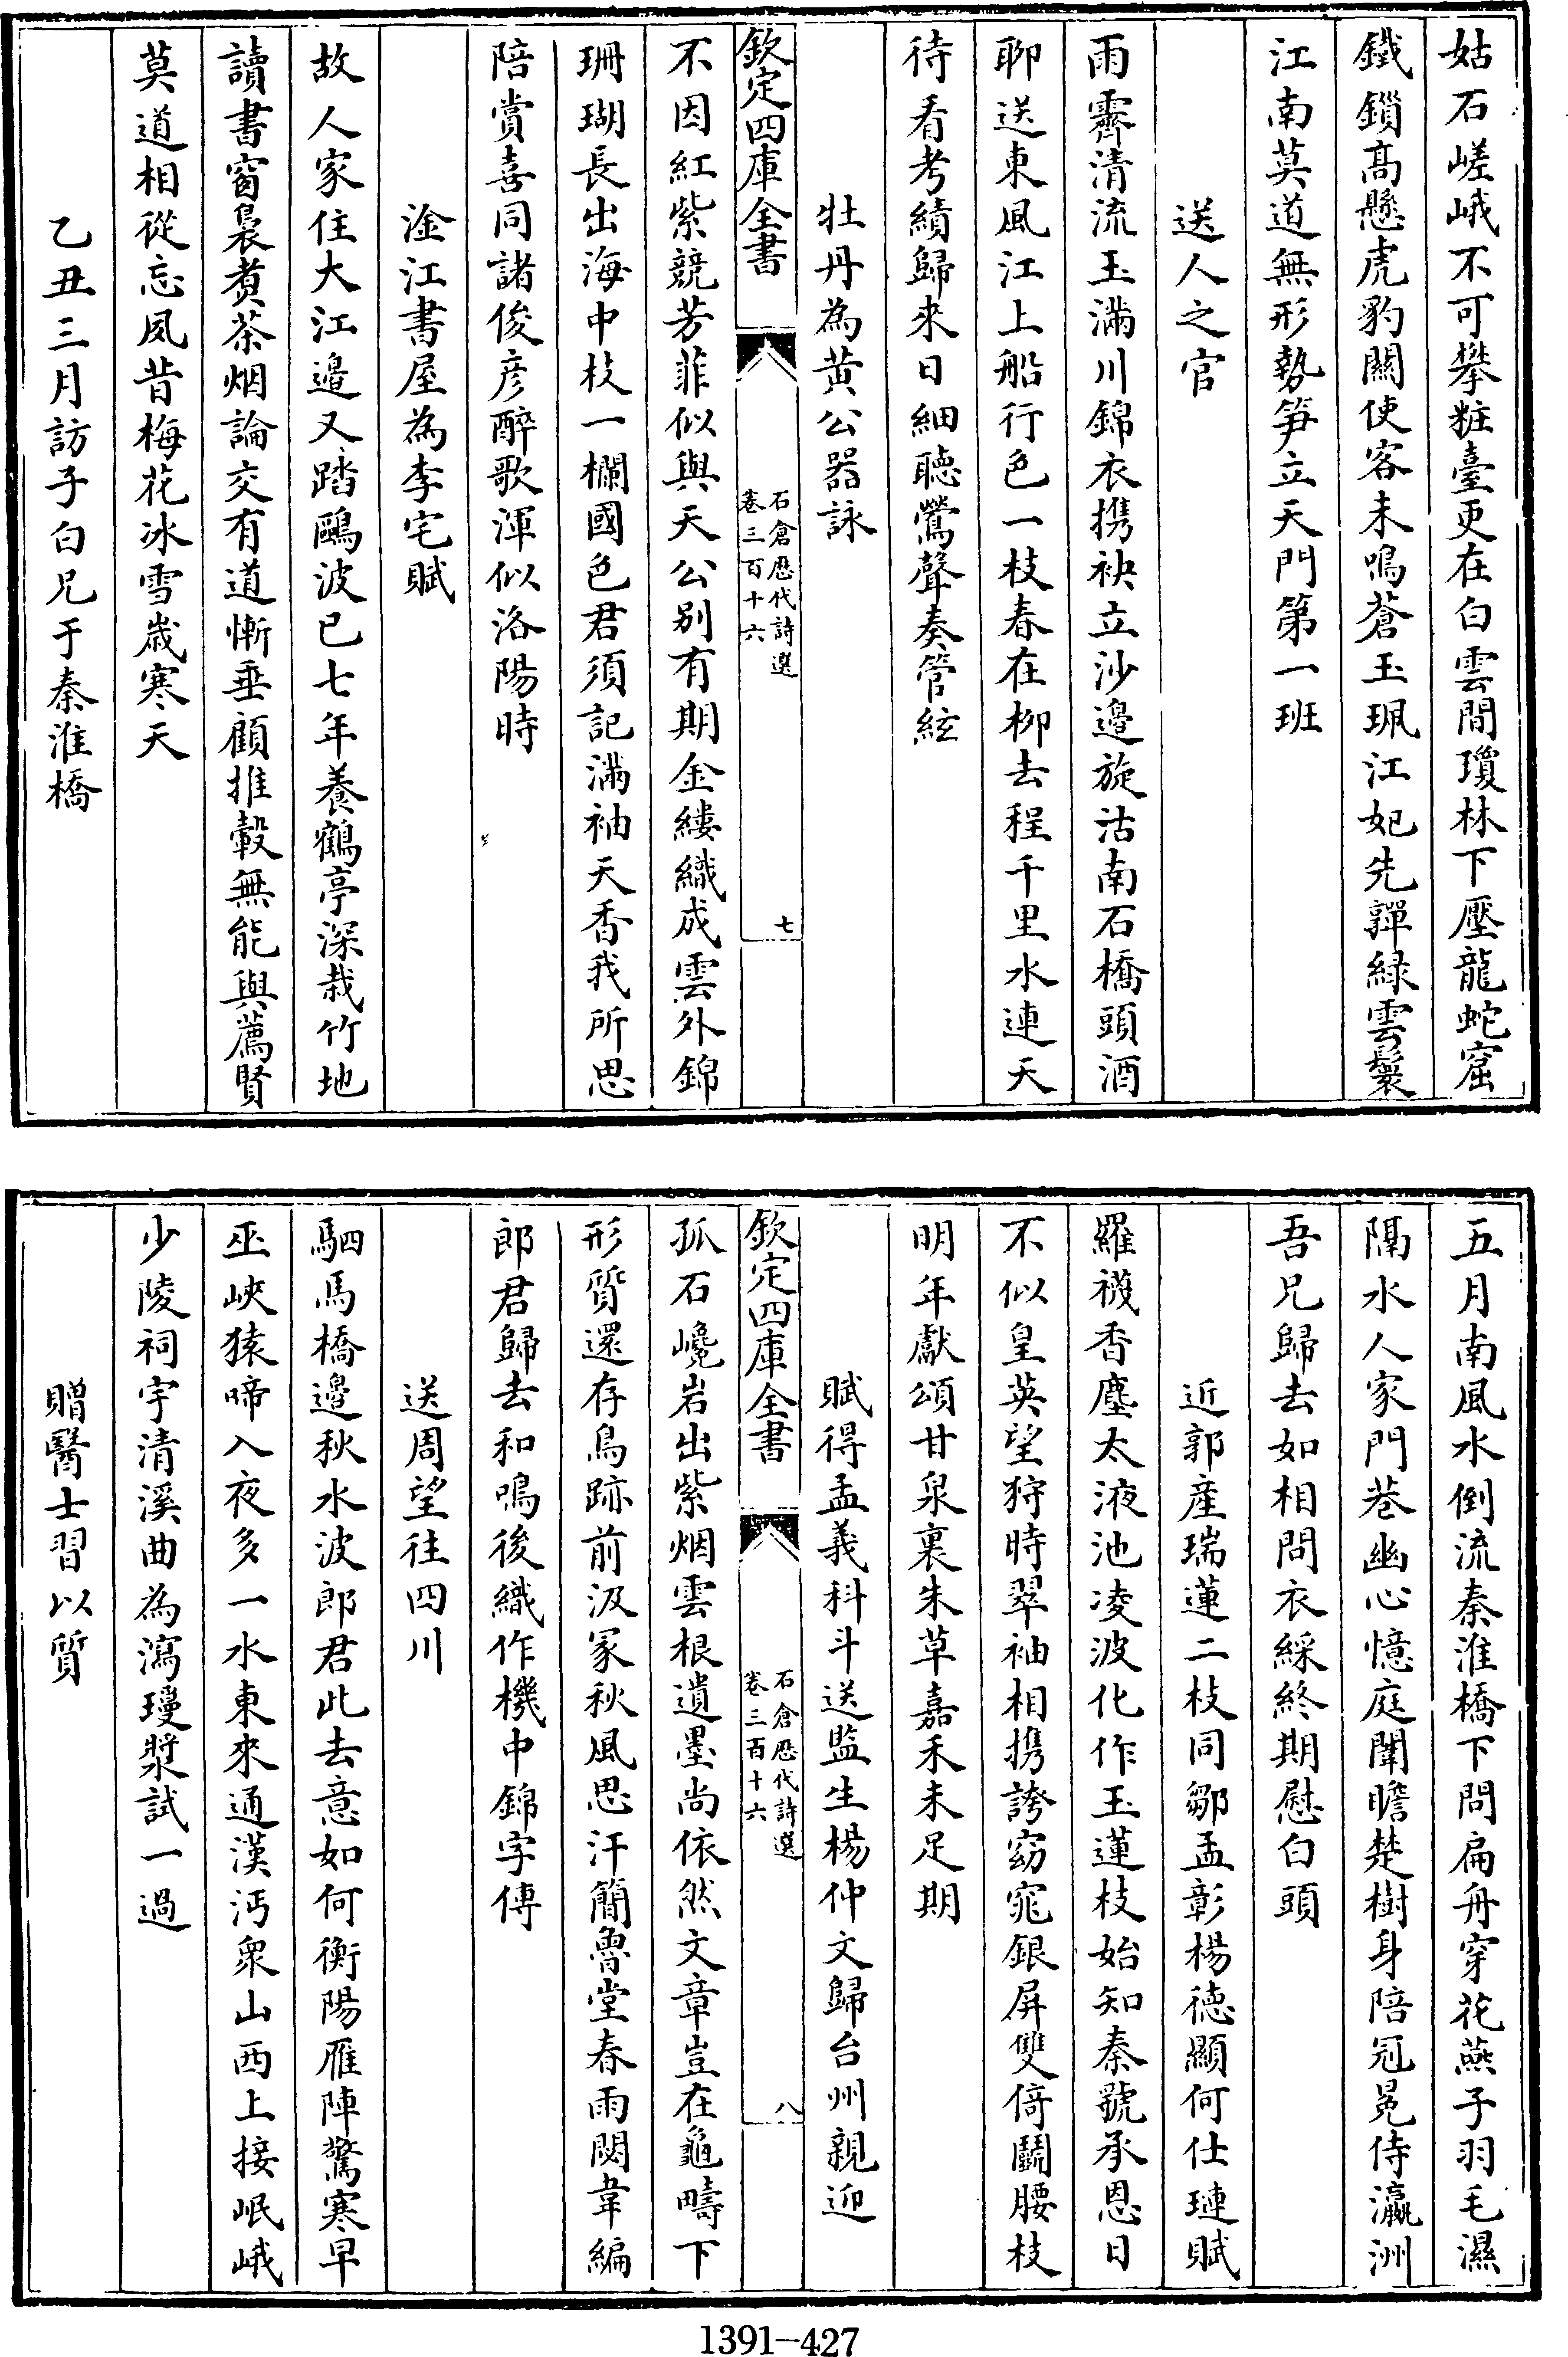 姑石嵯峨不可攀粧臺更在白雲間瓊林下壓龍蛇窟
鐵鎻髙懸虎豹關使客未鳴蒼玉珮江妃先嚲緑雲鬟
江南莫道無形勢笋立天門第一班
送人之官
雨霽清流玉滿川錦衣携袂立沙邉旋沽南石橋頭酒
聊送東風江上船行色一枝春在栁去程千里水連天
待看考績歸來日細聴鶯聲奏管絃
牡丹為黄公器詠
欽定四庫全書
石倉歴代詩選
卷三百十六
七
不因紅紫競芳菲似與天公别有期金縷織成雲外錦
珊瑚長出海中枝一欄國色君須記滿袖天香我所思
陪賞喜同諸俊彦醉歌渾似洛陽時
淦江書屋為李宅賦
故人家住大江邉又踏鷗波已七年養鶴亭深栽竹地
讀書窗裊煑茶烟論交有道慚垂顧推轂無能與薦賢
莫道相從忘夙昔梅花冰雪歲寒天
乙丑三月訪子白兄于秦淮橋
五月南風水倒流秦淮橋下問扁舟穿花燕子羽毛濕
隔水人家門巷幽心憶庭闈瞻楚樹身陪冠冕侍瀛洲
吾兄歸去如相問衣綵終期慰白頭
近郭産瑞蓮二枝同鄒孟彰楊徳顯何仕璉賦
羅襪香塵太液池凌波化作玉蓮枝始知秦虢承恩日
不似皇英望狩時翠袖相携誇窈窕銀屏雙倚鬭腰枝
明年獻頌甘泉裏朱草嘉禾未足期
賦得孟義科斗送監生楊仲文歸台州親迎
欽定四庫全書
石倉歴代詩選
卷三百十六
八
孤石巉岩出紫烟雲根遺墨尚依然文章豈在龜疇下
形質還存鳥跡前汲冢秋風思汗簡魯堂春雨閟韋編
郎君歸去和鳴後織作機中錦字傳
送周望往四川
駟馬橋邉秋水波郎君此去意如何衡陽雁陣驚寒早
巫峽猿啼入夜多一水東來通漢沔衆山西上接岷峨
少陵祠宇清溪曲為瀉瓊漿試一過
贈醫士習以質
1391-427